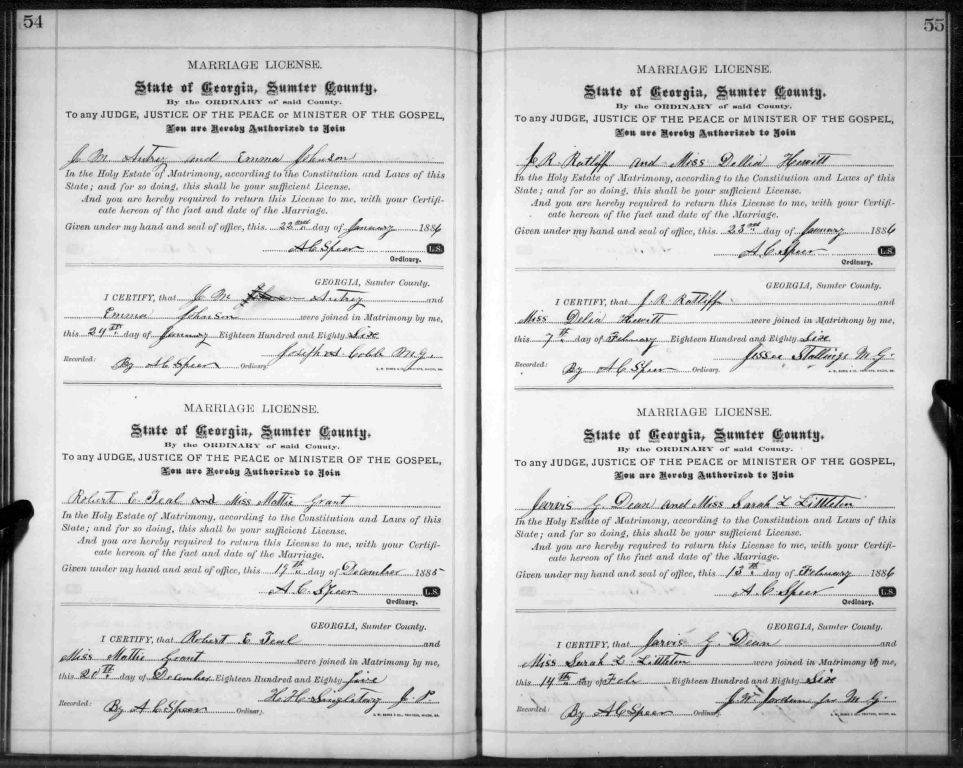 54
MARRIAGE LICENSE.
State of Georgia, Sumter County.
By the ORDINARY of said County.
To any JUDGE, JUSTICE OF THE PEACE or MINISTER OF THE GOSPEL,
You are Hereby Authorized to Join
C M Autry and Emma Johnson
In the Holy Estate of Matrimony, according to the Constitution and Laws of this
State; and for so doing, this shall be your sufficient License.
And you are hereby required to return this License to me, with your Certifi-
cate hereon of the fact and date of the Marriage.
Given under my hand and seal of office, this 22nd day of January 1886
A C Speer L.S.
Ordinary.
GEORGIA, Sumter County.
I CERTIFY, that C M Autry and
Emma Johnson were joined in Matrimony by me,
this 24th day of January Eighteen Hundred and Eighty Six
Joseph Cobb M.G.
Recorded: By A C Speer Ordinary.
MARRIAGE LICENSE.
State of Georgia, Sumter County.
By the ORDINARY of said County.
To any JUDGE, JUSTICE OF THE PEACE or MINISTER OF THE GOSPEL,
You are Hereby Authorized to Join
Robert E Teal and Miss Mattie Grant
In the Holy Estate of Matrimony, according to the Constitution and Laws of this
State; and for so doing, this shall be your sufficient License.
And you are hereby required to return this License to me, with your Certifi-
cate hereon of the fact and date of the Marriage.
Given under my hand and seal of office, this 19th day of December 1885
A C Speer L.S.
Ordinary.
GEORGIA, Sumter County.
I CERTIFY, that Robert E Teal and
Miss Mattie Grant were joined in Matrimony by me,
this 20th day of December Eighteen Hundred and Eighty five
H H Singletary J. P.
Recorded: By A C Speer Ordinary.
55
MARRIAGE LICENSE.
State of Georgia, Sumter County.
By the ORDINARY of said County.
To any JUDGE, JUSTICE OF THE PEACE or MINISTER OF THE GOSPEL,
You are Hereby Authorized to Join
J R Ratliff and Miss Dellia Hewitt
In the Holy Estate of Matrimony, according to the Constitution and Laws of this
State; and for so doing, this shall be your sufficient License.
And you are hereby required to return this License to me, with your Certifi-
cate hereon of the fact and date of the Marriage.
Given under my hand and seal of office, this 23rd day of January 1886
A C Speer L.S.
Ordinary.
GEORGIA, Sumter County.
I CERTIFY, that J R Ratliff and
Miss Delia Hewitt were joined in Matrimony by me,
this 7th day of February Eighteen Hundred and Eighty Six
Jesse Stallings M. G.
Recorded: By A C Speer Ordinary.
MARRIAGE LICENSE.
State of Georgia, Sumter County.
By the ORDINARY of said County.
To any JUDGE, JUSTICE OF THE PEACE or MINISTER OF THE GOSPEL,
You are Hereby Authorized to Join
Jarvis G Dean and Miss Sarah L Littleton
In the Holy Estate of Matrimony, according to the Constitution and Laws of this
State; and for so doing, this shall be your sufficient License.
And you are hereby required to return this License to me, with your Certifi-
cate hereon of the fact and date of the Marriage.
Given under my hand and seal of office, this 13th day of February 1886
A C Speer L.S.
Ordinary.
GEORGIA, Sumter County.
I CERTIFY, that Jarvis G. Dean and
Miss Sarah L. Littleton were joined in Matrimony by me,
this 14th day of Feb Eighteen Hundred and Eighty Six
J W Jordan Jr M G
Recorded: By A C Speer Ordinary.